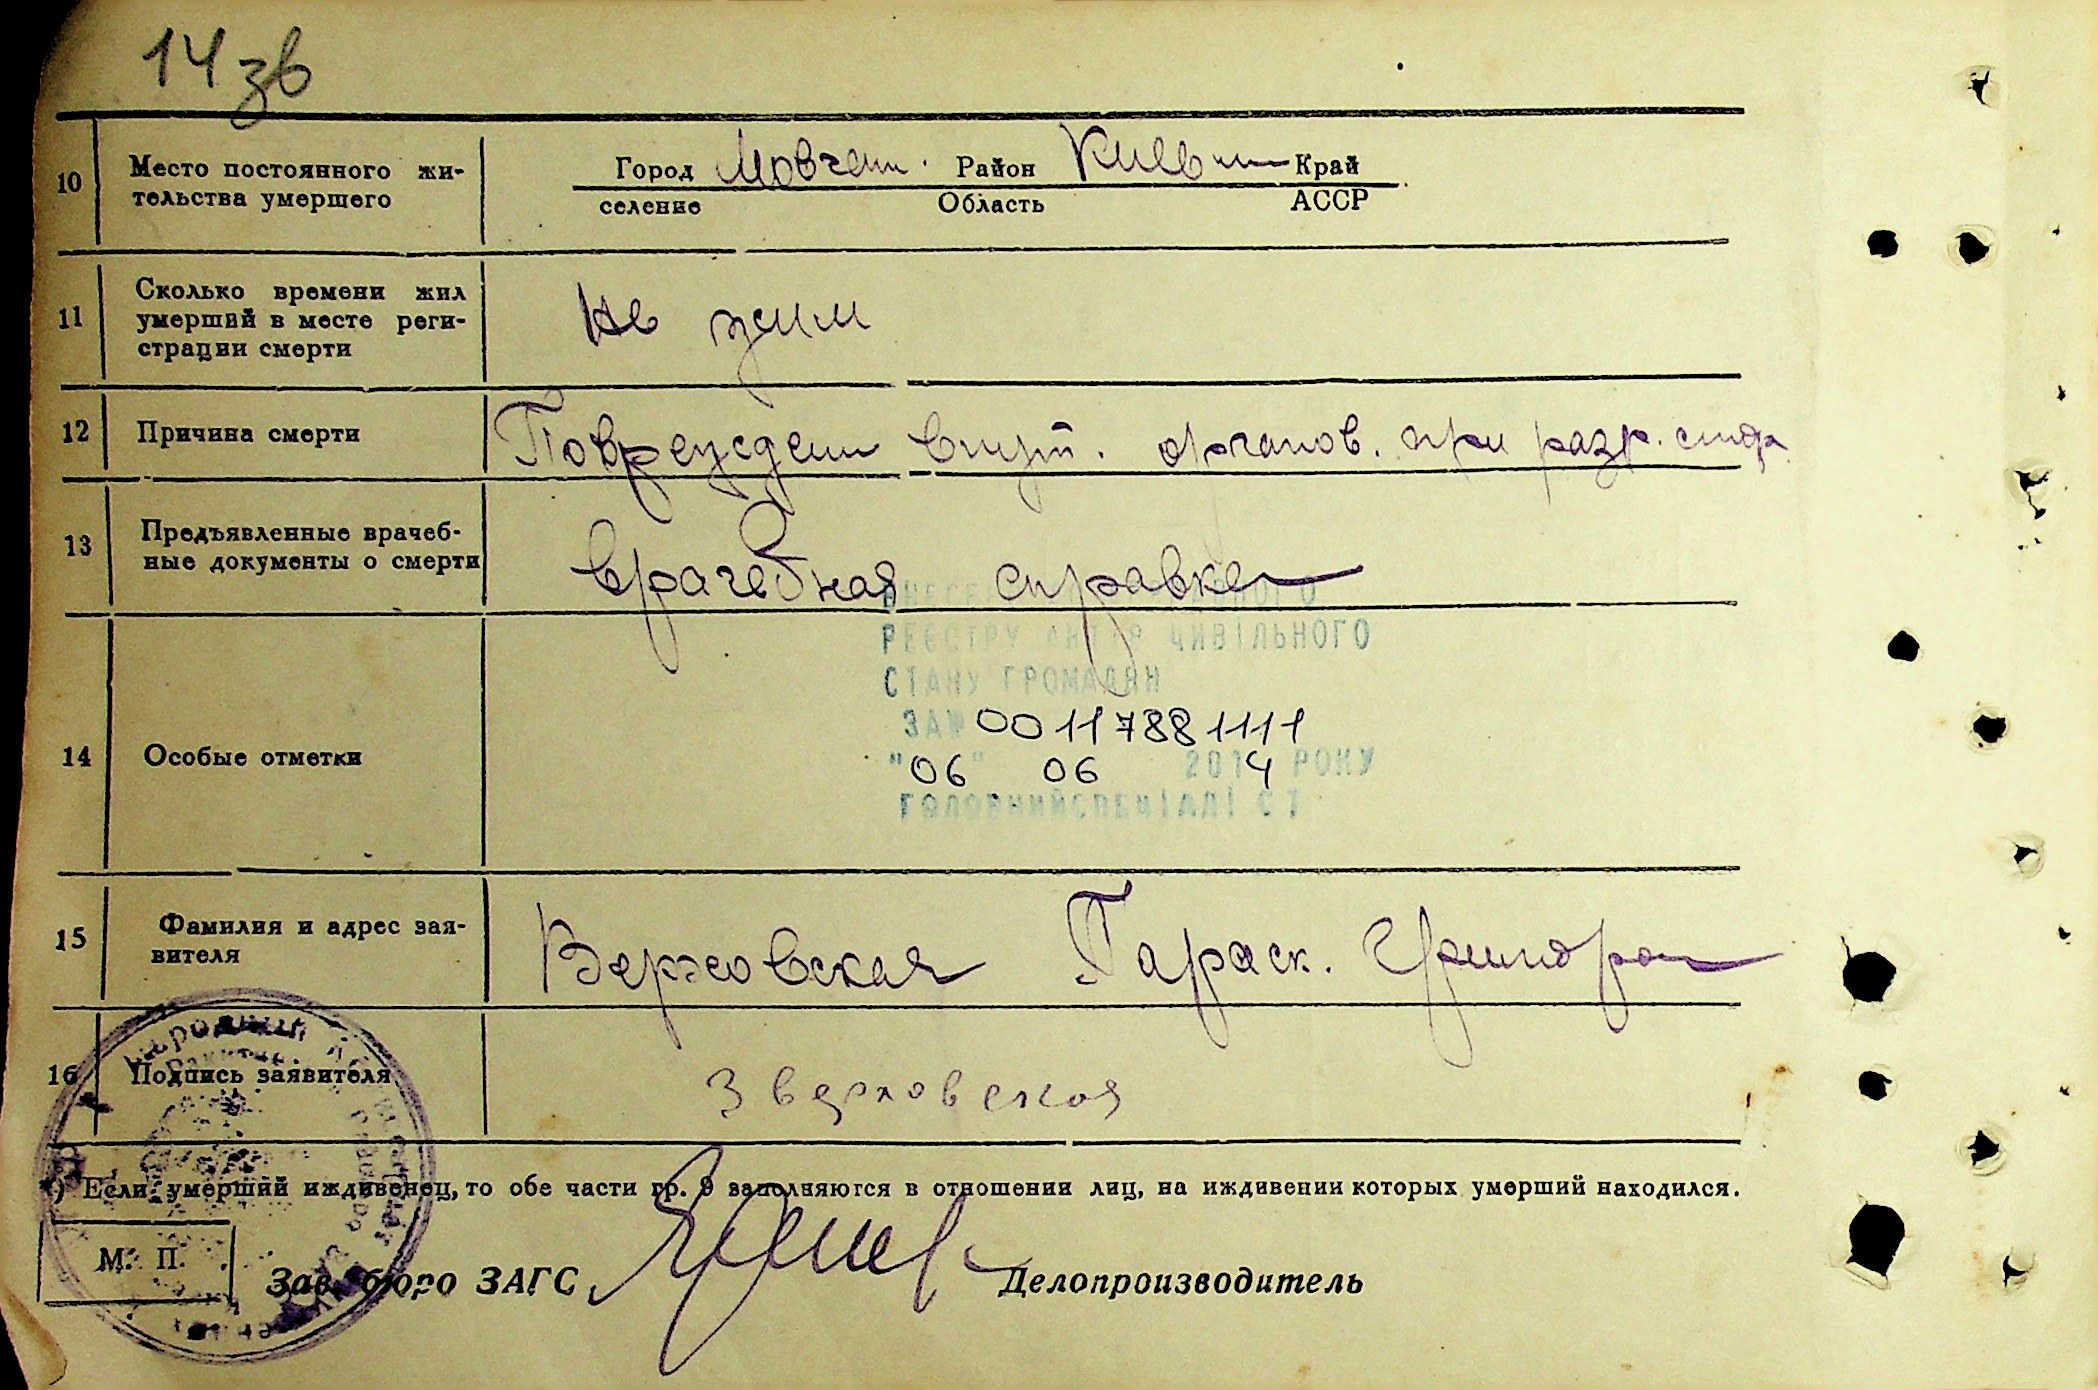 14 зв
10 Место постоянного жи-
тельства умершего
Город Район Край
селение Область АССР
11 Сколько времени жил
умерший в месте реги-
страции смерти
Не жил
12 Причина смерти
Поврежден внут. органов. при разр.
13 Предъявленные врачеб-
ные документы о смерти
Врачебная справка
РЕЄСТРУ АКТІВ ЦИВІЛЬНОГО
СТАНУ ГРОМАДЯН
ЗА № 00117881111
"06" 06 2014 РОКУ
14 Особые отметки
15 Фамилия и адрес зая-
вителя
Верховская Параск.
16 Подпись заявителя
Зверховская
*) Если умерший иждивенец, то обе части гр. 9 заполняются в отношении лиц, на иждивении которых умерший находился.
М. П.
Зав. бюро ЗАГС Делопроизводитель